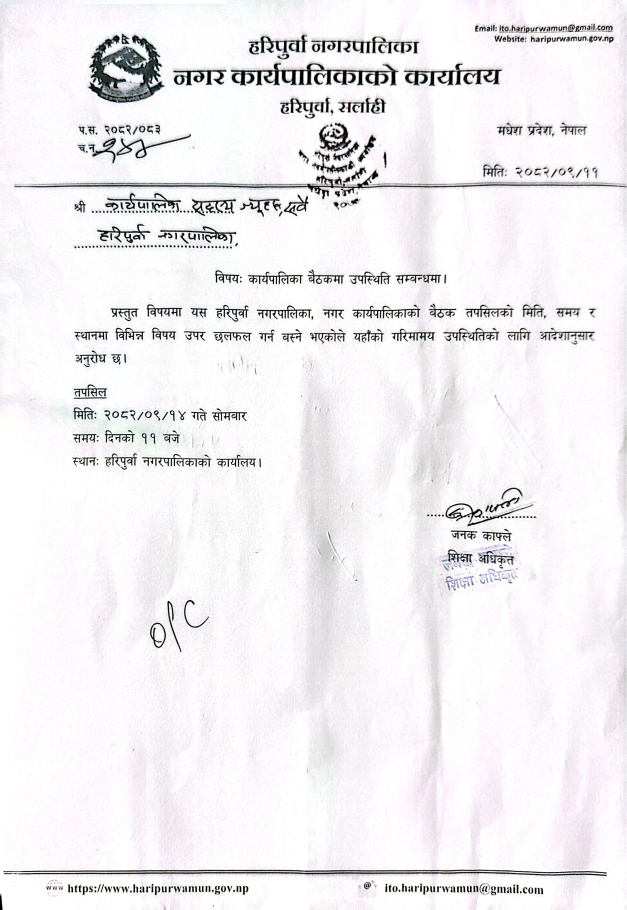 Email: ito.haripurwamun@gmail.com
Website: haripurwamun.gov.np
हरिपुर्वा नगरपालिका
नगर कार्यपालिकाको कार्यालय
हरिपुर्वा, सर्लाही
प.स. २०८२/०८३
मधेश प्रदेश, नेपाल
च.न.
मितिः २०८२/०९/११
श्री कार्यपालिका सदस्य ज्यूहरु, सवै
हरिपुर्वा नगरपालिका,
विषयः कार्यपालिका बैठकमा उपस्थिति सम्बन्धमा।
प्रस्तुत विषयमा यस हरिपुर्वा नगरपालिका, नगर कार्यपालिकाको बैठक तपसिलको मिति, समय र
स्थानमा विभिन्न विषय उपर छलफल गर्न बस्ने भएकोले यहाँको गरिमामय उपस्थितिको लागि आदेशानुसार
अनुरोध छ।
तपसिल
मितिः २०८२/०९/१४ गते सोमवार
समयः दिनको ११ बजे
स्थानः हरिपुर्वा नगरपालिकाको कार्यालय।
जनक काफ्ले
शिक्षा अधिकृत
जनक काफ्ले
शिक्षा अधिकृत
O/C
www https://www.haripurwamun.gov.np
@ ito.haripurwamun@gmail.com